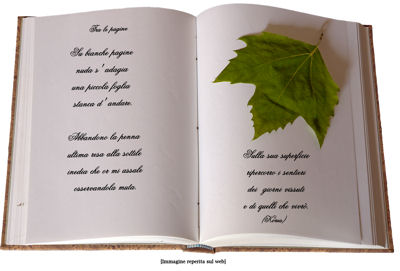 Tra le pagine
Su bianche pagine
nuda s'adagia
una piccola foglia
stanca d'andare.
Abbandono la penna
ultima resa alla sottile
inedia che or mi assale
osservandola muta.
Sulla sua superficie
ripercorro i sentieri
dei giorni vissuti
e di quelli che vivrò.
(Kéma)
[immagine reperita sul web]